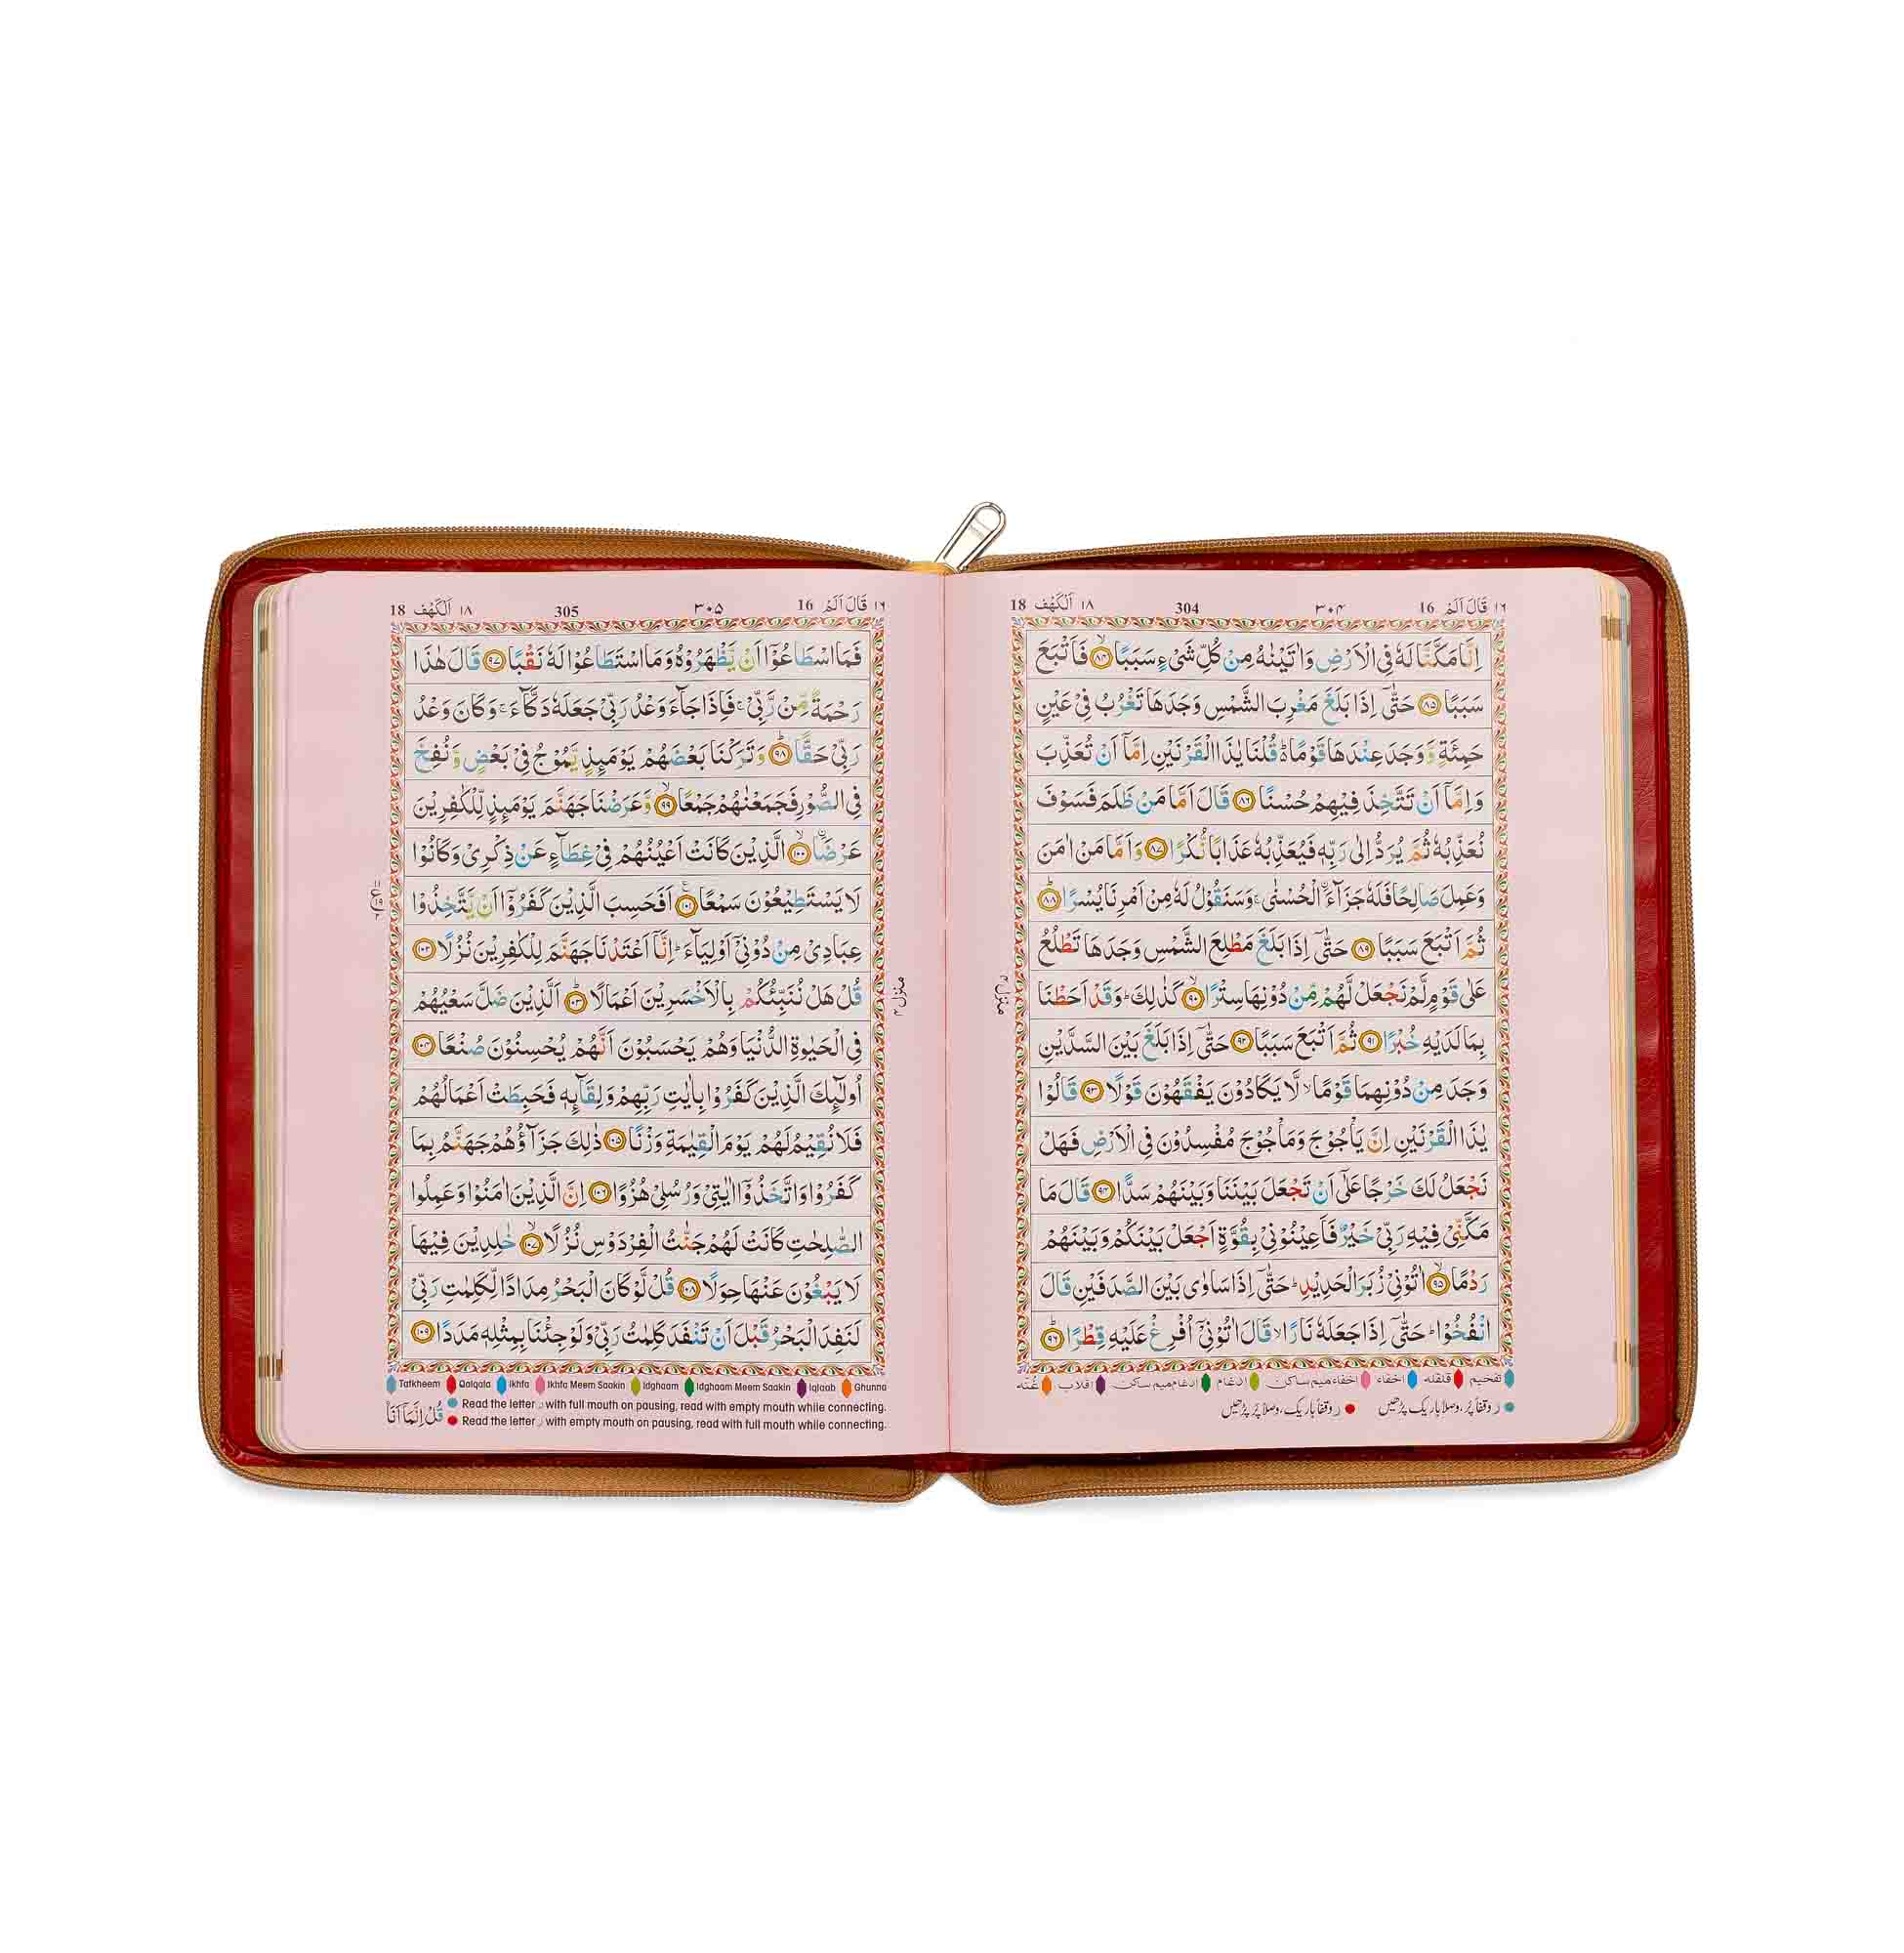 ١٦ قَالَ اَلَمْ 16 ٣٠۴ 304 ١٨ اَلْكَهْف 18
اِنَّا مَكَّنَّا لَهٗ فِى الْاَرْضِ وَاٰتَيْنٰهُ مِنْ كُلِّ شَىْءٍ سَبَبًا ۙ‏﴿۸۴﴾ فَاَتْبَعَ
سَبَبًا ‏﴿۸۵﴾ حَتّٰٓى اِذَا بَلَغَ مَغْرِبَ الشَّمْسِ وَجَدَهَا تَغْرُبُ فِىْ عَيْنٍ
حَمِئَةٍ وَّوَجَدَ عِنْدَهَا قَوْمًا ؕ قُلْنَا يٰذَا الْقَرْنَيْنِ اِمَّاۤ اَنْ تُعَذِّبَ
وَاِمَّاۤ اَنْ تَتَّخِذَ فِيْهِمْ حُسْنًا ‏﴿۸۶﴾ قَالَ اَمَّا مَنْ ظَلَمَ فَسَوْفَ
نُعَذِّبُهٗ ثُمَّ يُرَدُّ اِلٰى رَبِّهٖ فَيُعَذِّبُهٗ عَذَابًا نُّكْرًا ‏﴿۸۷﴾ وَاَمَّا مَنْ اٰمَنَ
وَعَمِلَ صَالِحًا فَلَهٗ جَزَآءَ ۨالْحُسْنٰى ۚ وَسَنَقُوْلُ لَهٗ مِنْ اَمْرِنَا يُسْرًا ؕ‏﴿۸۸﴾
ثُمَّ اَتْبَعَ سَبَبًا ‏﴿۸۹﴾ حَتّٰٓى اِذَا بَلَغَ مَطْلِعَ الشَّمْسِ وَجَدَهَا تَطْلُعُ
عَلٰى قَوْمٍ لَّمْ نَجْعَلْ لَّهُمْ مِّنْ دُوْنِهَا سِتْرًا ۙ‏﴿۹۰﴾ كَذٰلِكَ ؕ وَقَدْ اَحَطْنَا
بِمَا لَدَيْهِ خُبْرًا ‏﴿۹۱﴾ ثُمَّ اَتْبَعَ سَبَبًا ‏﴿۹۲﴾ حَتّٰٓى اِذَا بَلَغَ بَيْنَ السَّدَّيْنِ
وَجَدَ مِنْ دُوْنِهِمَا قَوْمًا ۙ لَّا يَكَادُوْنَ يَفْقَهُوْنَ قَوْلًا ‏﴿۹۳﴾ قَالُوْا
يٰذَا الْقَرْنَيْنِ اِنَّ يَاْجُوْجَ وَمَاْجُوْجَ مُفْسِدُوْنَ فِى الْاَرْضِ فَهَلْ
نَجْعَلُ لَكَ خَرْجًا عَلٰٓى اَنْ تَجْعَلَ بَيْنَنَا وَبَيْنَهُمْ سَدًّا ‏﴿۹۴﴾ قَالَ مَا
مَكَّنِّىْ فِيْهِ رَبِّىْ خَيْرٌ فَاَعِيْنُوْنِىْ بِقُوَّةٍ اَجْعَلْ بَيْنَكُمْ وَبَيْنَهُمْ
رَدْمًا ۙ‏﴿۹۵﴾ اٰتُوْنِىْ زُبَرَ الْحَدِيْدِ ؕ حَتّٰٓى اِذَا سَاوٰى بَيْنَ الصَّدَفَيْنِ قَالَ
انْفُخُوْا ؕ حَتّٰٓى اِذَا جَعَلَهٗ نَارًا ۙ قَالَ اٰتُوْنِىْۤ اُفْرِغْ عَلَيْهِ قِطْرًا ؕ‏﴿۹۶﴾
منزل ۴
تفخيم قلقله اخفاء اخفاء ميم ساكن ادغام ادغام ميم ساكن اقلاب غنّه
ر وقفًا پُر، وصلًا باریک پڑھیں ر وقفًا باریک، وصلًا پُر پڑھیں
١٦ قَالَ اَلَمْ 16 ٣٠۵ 305 ١٨ اَلْكَهْف 18
فَمَا اسْطَاعُوْۤا اَنْ يَّظْهَرُوْهُ وَمَا اسْتَطَاعُوْا لَهٗ نَقْبًا ‏﴿۹۷﴾ قَالَ هٰذَا
رَحْمَةٌ مِّنْ رَّبِّىْ ۚ فَاِذَا جَآءَ وَعْدُ رَبِّىْ جَعَلَهٗ دَكَّآءَ ۚ وَكَانَ وَعْدُ
رَبِّىْ حَقًّا ؕ‏﴿۹۸﴾ وَتَرَكْنَا بَعْضَهُمْ يَوْمَئِذٍ يَّمُوْجُ فِىْ بَعْضٍ وَّنُفِخَ
فِى الصُّوْرِ فَجَمَعْنٰهُمْ جَمْعًا ۙ‏﴿۹۹﴾ وَّعَرَضْنَا جَهَنَّمَ يَوْمَئِذٍ لِّلْكٰفِرِيْنَ
عَرْضَا ۙ‏﴿۱۰۰﴾ الَّذِيْنَ كَانَتْ اَعْيُنُهُمْ فِىْ غِطَآءٍ عَنْ ذِكْرِىْ وَكَانُوْا
لَا يَسْتَطِيْعُوْنَ سَمْعًا ‏﴿۱۰۱﴾ اَفَحَسِبَ الَّذِيْنَ كَفَرُوْۤا اَنْ يَّتَّخِذُوْا
عِبَادِىْ مِنْ دُوْنِىْۤ اَوْلِيَآءَ ؕ اِنَّاۤ اَعْتَدْنَا جَهَنَّمَ لِلْكٰفِرِيْنَ نُزُلًا ‏﴿۱۰۲﴾
قُلْ هَلْ نُنَبِّئُكُمْ بِالْاَخْسَرِيْنَ اَعْمَالًا ؕ‏﴿۱۰۳﴾ اَلَّذِيْنَ ضَلَّ سَعْيُهُمْ
فِى الْحَيٰوةِ الدُّنْيَا وَهُمْ يَحْسَبُوْنَ اَنَّهُمْ يُحْسِنُوْنَ صُنْعًا ‏﴿۱۰۴﴾
اُولٰٓئِكَ الَّذِيْنَ كَفَرُوْا بِاٰيٰتِ رَبِّهِمْ وَلِقَآئِهٖ فَحَبِطَتْ اَعْمَالُهُمْ
فَلَا نُقِيْمُ لَهُمْ يَوْمَ الْقِيٰمَةِ وَزْنًا ‏﴿۱۰۵﴾ ذٰلِكَ جَزَآؤُهُمْ جَهَنَّمُ بِمَا
كَفَرُوْا وَاتَّخَذُوْۤا اٰيٰتِىْ وَرُسُلِىْ هُزُوًا ‏﴿۱۰۶﴾ اِنَّ الَّذِيْنَ اٰمَنُوْا وَعَمِلُوا
الصّٰلِحٰتِ كَانَتْ لَهُمْ جَنّٰتُ الْفِرْدَوْسِ نُزُلًا ۙ‏﴿۱۰۷﴾ خٰلِدِيْنَ فِيْهَا
لَا يَبْغُوْنَ عَنْهَا حِوَلًا ‏﴿۱۰۸﴾ قُلْ لَّوْ كَانَ الْبَحْرُ مِدَادًا لِّكَلِمٰتِ رَبِّىْ
لَنَفِدَ الْبَحْرُ قَبْلَ اَنْ تَنْفَدَ كَلِمٰتُ رَبِّىْ وَلَوْ جِئْنَا بِمِثْلِهٖ مَدَدًا ‏﴿۱۰۹﴾
منزل ۴
Tafkheem Qalqala Ikhfa Ikhfa Meem Saakin Idghaam Idghaam Meem Saakin Iqlaab Ghunna
Read the letter ر with full mouth on pausing, read with empty mouth while connecting.
Read the letter ر with empty mouth on pausing, read with full mouth while connecting.
قُلْ اِنَّمَاۤ اَنَا